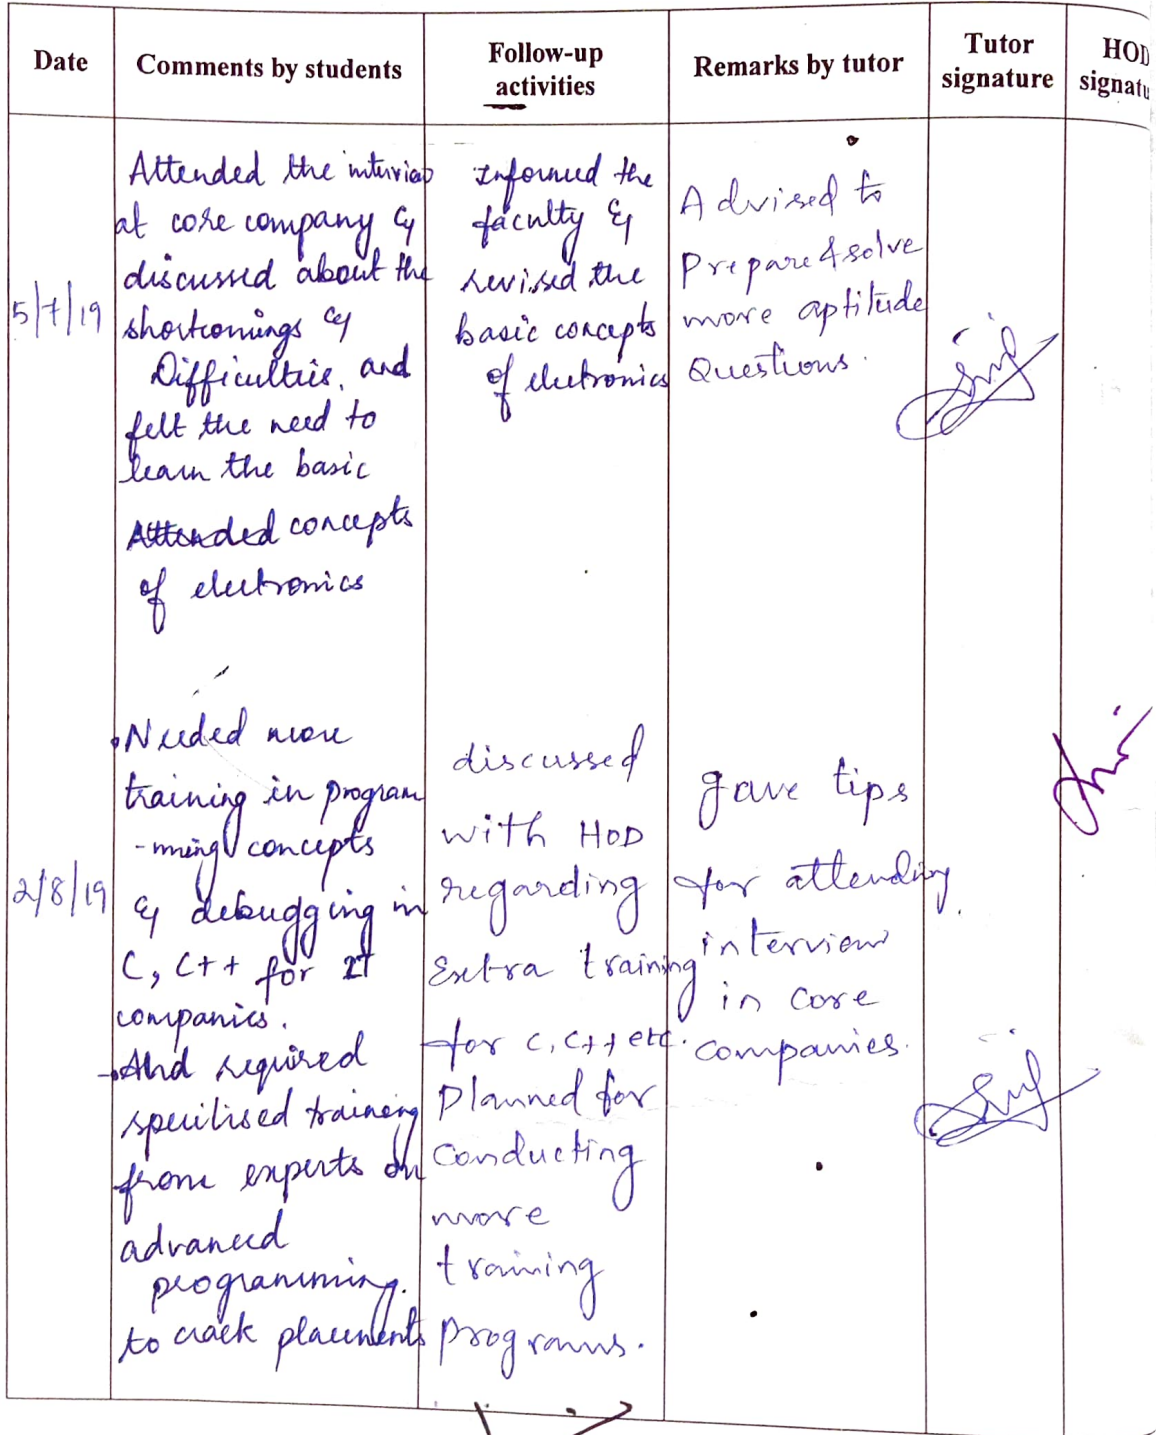 Date
Comments by students
Follow-up
activities
Remarks by tutor
Tutor
signature
HOD
signatu
5/7/19
Attended the interview
at core company &
discussed about the
shortcomings &
Difficulties, and
felt the need to
learn the basic
Attended concepts
of electronics
Informed the
faculty &
revised the
basic concepts
of electronics
Advised to
Prepare & solve
more aptitude
Questions.
2/8/19
Needed more
training in program
-ming concepts
& debugging in
C, C++ for IT
companies.
And required
specilised training
from experts on
advanced
programming.
to crack placements
discussed
with HOD
regarding
Extra training
for C, C++ etc.
Planned for
conducting
more
training
programs.
gave tips
for attending
interview
in core
companies.